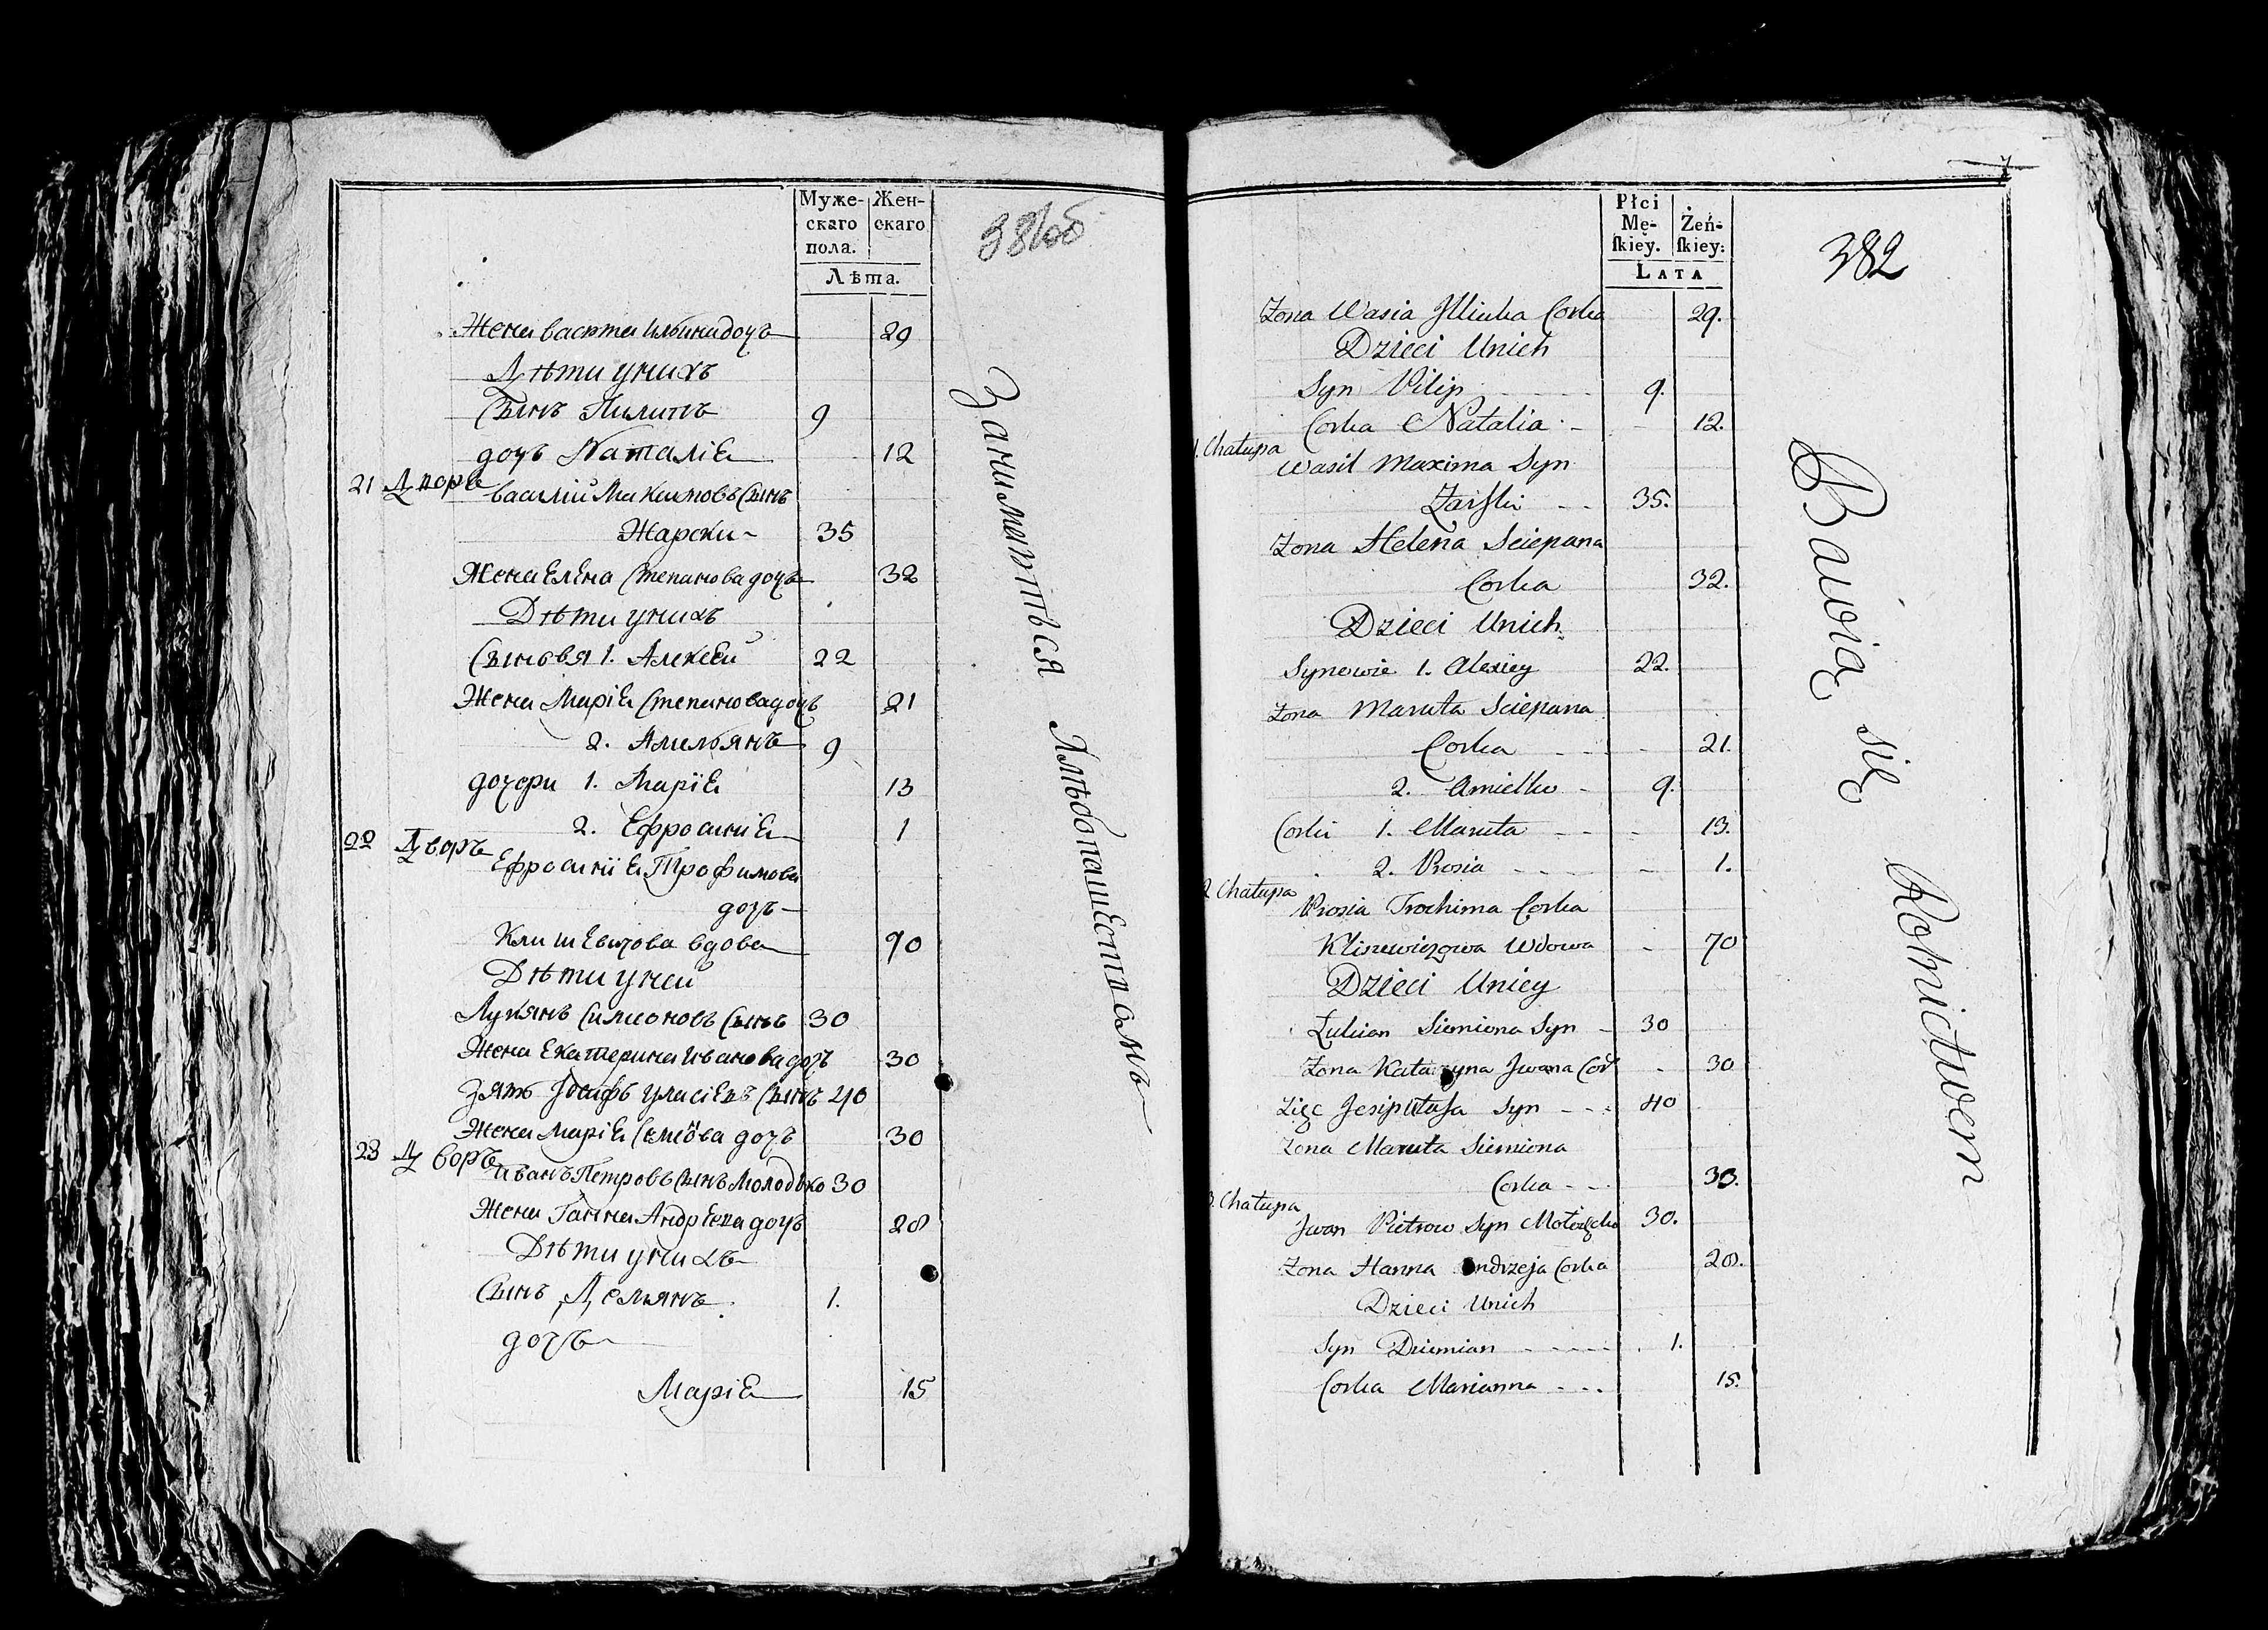 Муже-
скаго
пола.
Жен-
скаго
Лѣта.
381об
Жена васта Ильина дочь 29
Дѣти унихъ
Сынъ Пилипъ 9
дочь Наталіѧ 12
21 Дворъ
василій Максимовъ Сынъ
Жарски 35
Жена Елена Степанова дочь 32
Дѣти унихъ
Сыновя 1. Алексей 22
Жена Марiя Степанова дочь 21
2. Амильянъ 9
дочери 1. Марїя 13
2. Ефросинiя 1
22 Дворъ
Ефросинїя Трофимова
дочь
Клишевичова вдова 70
Дѣти уней
Лукянъ Симоновъ Сынъ 30
Жена Екатерина Иванова дочь 30
Зять Iосифъ Уласiевъ Сынъ 40
Жена Марiя Семïова дочь 30
23 Дворъ
Иванъ Петровъ Сынъ Молодько 30
Жена Ганна Андреева дочь 28
Дѣти унихъ
Сынъ Демянъ 1.
дочь
Марiя 15
Занимаются Хлѣбопашествомъ
Płci
Mę-
ſkiey.
Żeń-
ſkiey:
LATA
382
Zona Wasia Jllinha Corka 29.
Dzieci Unich
Syn Pilip 9.
Corka Natalia 12.
1. Chałupa
Wasil Maxima Syn
Żarſki 35.
Zona Helena Sciepana
Corka 32.
Dzieci Unich
Synowie 1. Alexiey 22.
Zona Maruta Sciepana
Corka 21.
2. Amielko 9.
Corki 1. Maruta 13.
2. Prosia 1.
2 Chałupa
Prosia Trochima Corka
Kliszewiczowa Wdowa 70
Dzieci Uniey
Łukian Siemiona Syn 30
Zona Katarzyna Jwana Cor 30
Zięc Jesip Ułasa Syn 40
Zona Maruta Siemiona
Corka 30.
3. Chałupa
Jwan Pietrow Syn Mołodzko 30.
Zona Hanna Andrzeja Corka 28.
Dzieci Unich
Syn Dziemian 1.
Corka Marianna 15.
Bawią się Rolnictwem